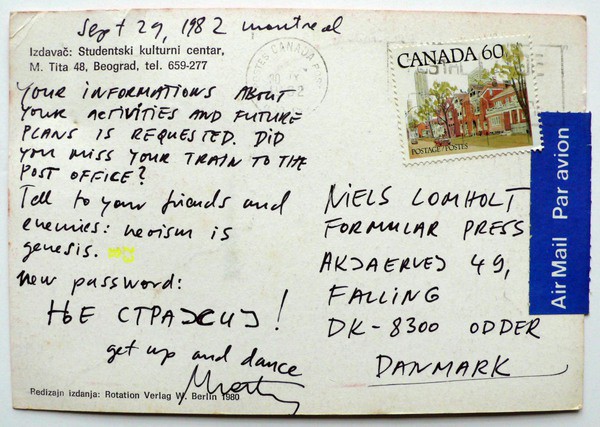 Sept 29, 1982 montreal
Izdavač: Studentski kulturni centar,
M. Tita 48, Beograd, tel. 659-277
YOUR INFORMATIONS ABOUT
YOUR ACTIVITIES AND FUTURE
PLANS IS REQUESTED. DID
YOU MISS YOUR TRAIN TO THE
POST OFFICE?
Tell to your friends and
enemies: neoism is
genesis.
new password:
get up and dance
Redizajn izdanja: Rotation Verlag W. Berlin 1980
CANADA 60
POSTAGE/POSTES
CANADA
Air Mail Par avion
NIELS LOMHOLT
FORMULAR PRESS
49,
FALLING
DK-8300 ODDER
DANMARK